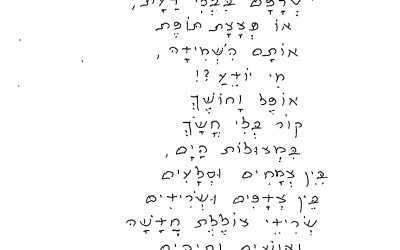 שְׂרָפָם בִּבְלִי דַּעַת,
אוֹ פְּצָצַת תּוֹפֶת
אוֹתָם הִשְׁמִידָה,
מִי יוֹדֵעַ ?!
אוֹפֶל וָחוֹשֶׁךְ
קוֹר בְּלִי חָשָׂךְ
בִּמְצוּלוֹת הַיָּם,
בֵּין צְמָחִים וּסְלָעִים
בֵּין צְדָפִים וּשְׂרִידִים
שְׂרִידֵי צוֹלֶלֶת חֲדָשָׁה